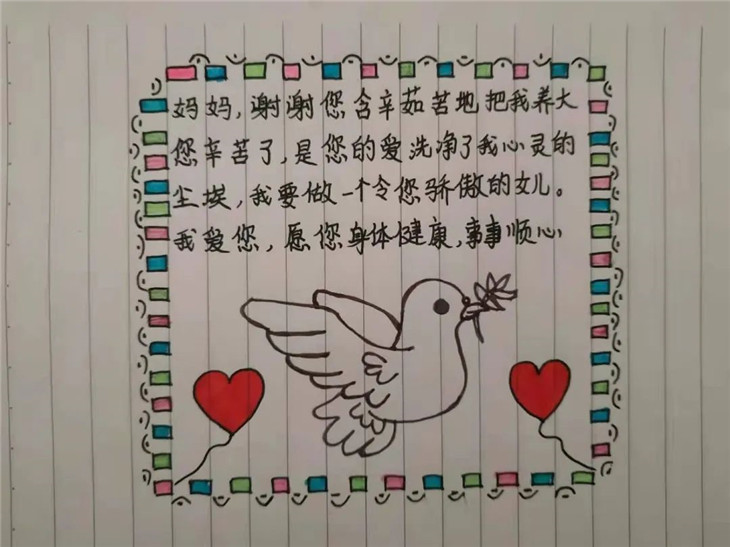 妈妈,谢谢您含辛茹苦地把我养大
您辛苦了,是您的爱洗净了我心灵的
尘埃,我要做一个令您骄傲的女儿。
我爱您,愿您身体健康,事事顺心